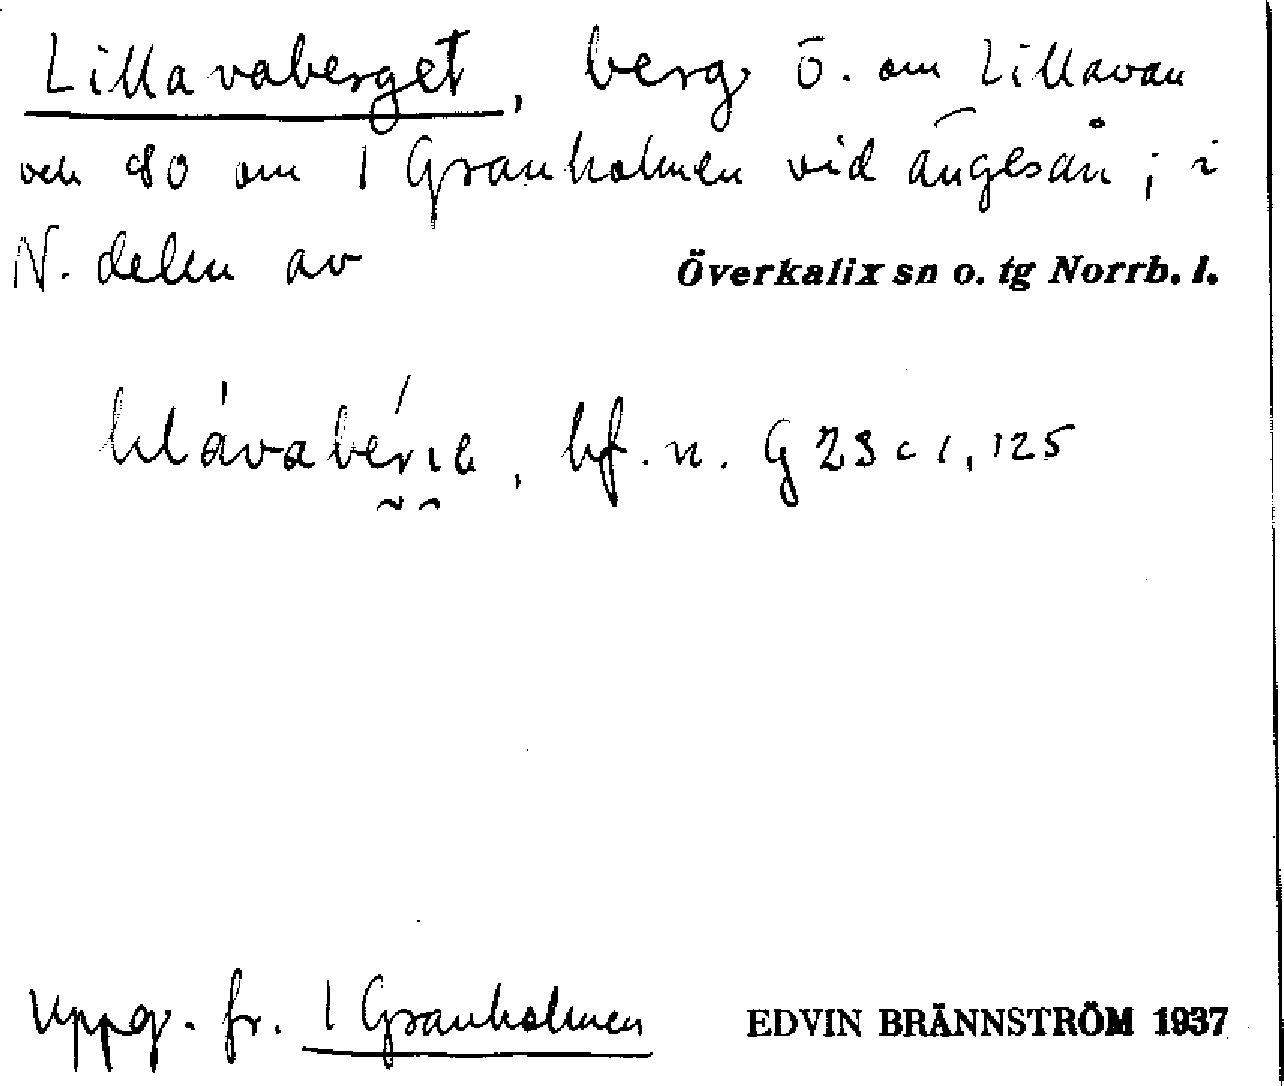 Lillavaberget, berg Ö. om Lillavan
och SO om 1 Granholmen vid Ängesån; i
N. delen av Överkalix sn o. tg Norrb. l.
bf. n. G 23 c 1, 125
Uppg. fr. 1 Granholmen EDVIN BRÄNNSTRÖM 1937